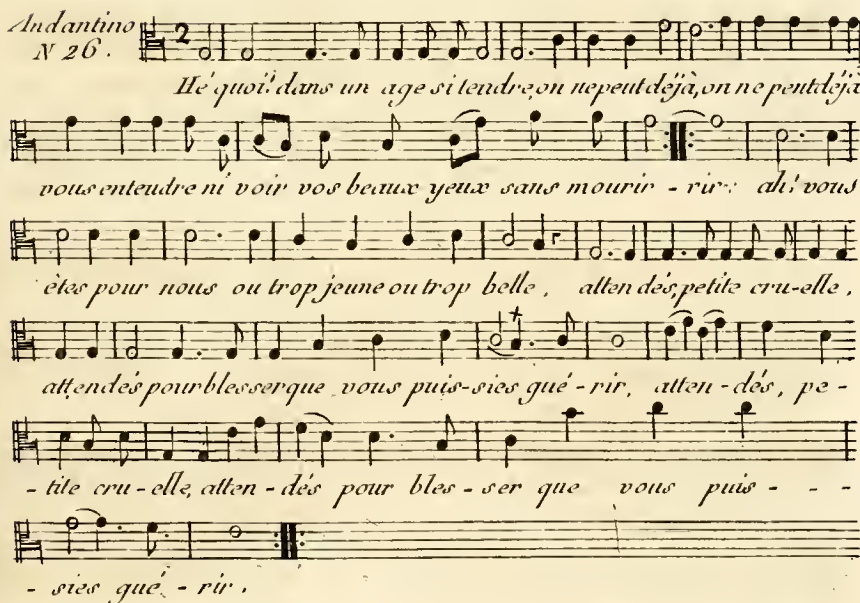 Andantino
N 26.
2
Hé quoi! dans un age si tendre, on ne peut déjà, on ne peut déjà
vous entendre ni voir vos beaux yeux sans mourir - rir: ah! vous
êtes pour nous ou trop jeune ou trop belle, attendés, petite cru-elle,
attendés pour blesser que vous puis-sies gué-rir, atten-dés, pe-
- tite cru-elle, atten-dés pour bles-ser que vous puis- - -
- sies gué-rir.